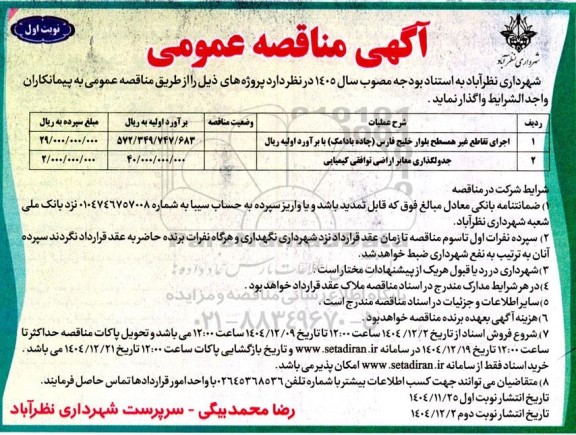 نوبت اول
شهرداری نظرآباد
آگهی مناقصه عمومی
شهرداری نظرآباد به استناد بودجه مصوب سال ۱۴۰۵ در نظر دارد پروژه های ذیل را از طریق مناقصه عمومی به پیمانکاران
واجد الشرایط واگذار نماید .
ردیف شرح عملیات وضعیت مناقصه برآورد اولیه به ریال مبلغ سپرده به ریال
۱ اجرای تقاطع غیر همسطح بلوار خلیج فارس (جاده بادامک) با برآورد اولیه ریال ۵۷۲/۳۴۹/۷۴۷/۶۸۳ ۲۹/۰۰۰/۰۰۰/۰۰۰
۲ جدولگذاری معابر اراضی توافقی کیمیایی ۴۰/۰۰۰/۰۰۰/۰۰۰ ۲/۰۰۰/۰۰۰/۰۰۰
شرایط شرکت در مناقصه
۱) ضمانتنامه بانکی معادل مبالغ فوق که قابل تمدید باشد و یا واریز سپرده به حساب سیبا به شماره ۰۱۰۴۷۴۶۷۵۷۰۰۸ نزد بانک ملی
شعبه شهرداری نظرآباد.
۲) سپرده نفرات اول تا سوم مناقصه تا زمان عقد قرارداد نزد شهرداری نگهداری و هرگاه نفرات برنده حاضر به عقد قرارداد نگردند سپرده
آنان به ترتیب به نفع شهرداری ضبط خواهد شد.
۳) شهرداری در رد یا قبول هر یک از پیشنهادات مختار است.
۴) در هر شرایط مدارک مندرج در اسناد مناقصه ملاک عقد قرارداد خواهد بود.
۵) سایر اطلاعات و جزئیات در اسناد مناقصه مندرج است.
۶) هزینه آگهی بعهده برنده مناقصه خواهد بود.
۷) شروع فروش اسناد از تاریخ ۱۴۰۴/۱۲/۲ ساعت ۱۲:۰۰ تا تاریخ ۱۴۰۴/۱۲/۰۹ ساعت ۱۲:۰۰ می باشد و تحویل پاکات مناقصه حداکثر تا
ساعت ۱۲:۰۰ تاریخ ۱۴۰۴/۱۲/۱۹ در سامانه www.setadiran.ir و تاریخ بازگشایی پاکات ساعت ۱۲:۰۰ تاریخ ۱۴۰۴/۱۲/۲۱ می باشد .
خرید اسناد فقط از سامانه www.setadiran.ir امکان پذیر می باشد.
۸) متقاضیان می توانند جهت کسب اطلاعات بیشتر با شماره تلفن ۰۲۶۴۵۳۶۸۵۳۶ با واحد امور قراردادها تماس حاصل فرمایند.
تاریخ انتشار نوبت اول ۱۴۰۴/۱۱/۲۵
تاریخ انتشار نوبت دوم ۱۴۰۴/۱۲/۲
رضا محمدبیگی - سرپرست شهرداری نظرآباد
پایگاه اطلاع رسانی مناقصه و مزایده
۰۲۱-۸۸۳۴۹۶۷۰